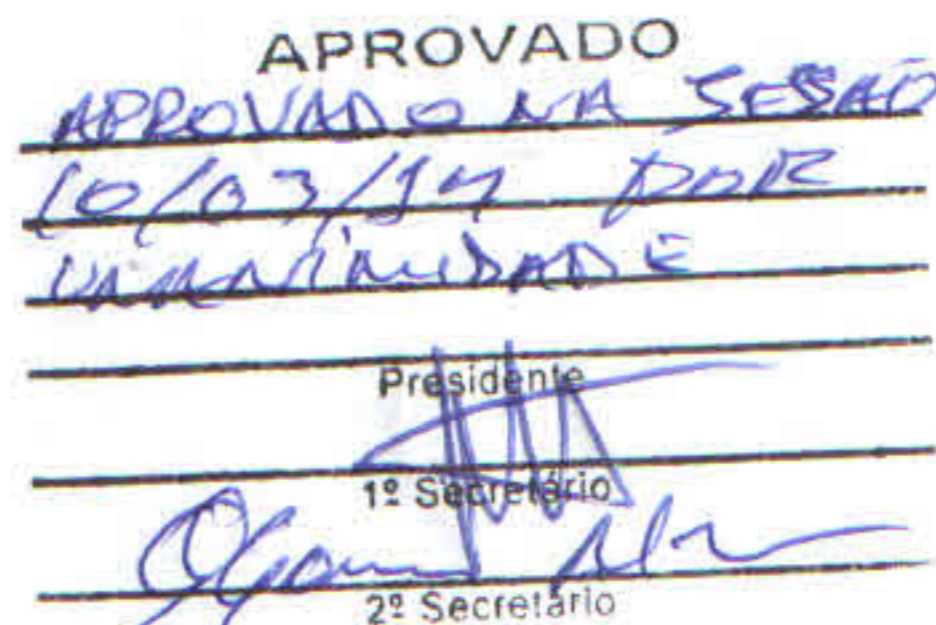 APROVADO
APROVADO NA SESSÃO
10/03/14 POR
UNANIMIDADE
Presidente
1º Secretário
2º Secretário